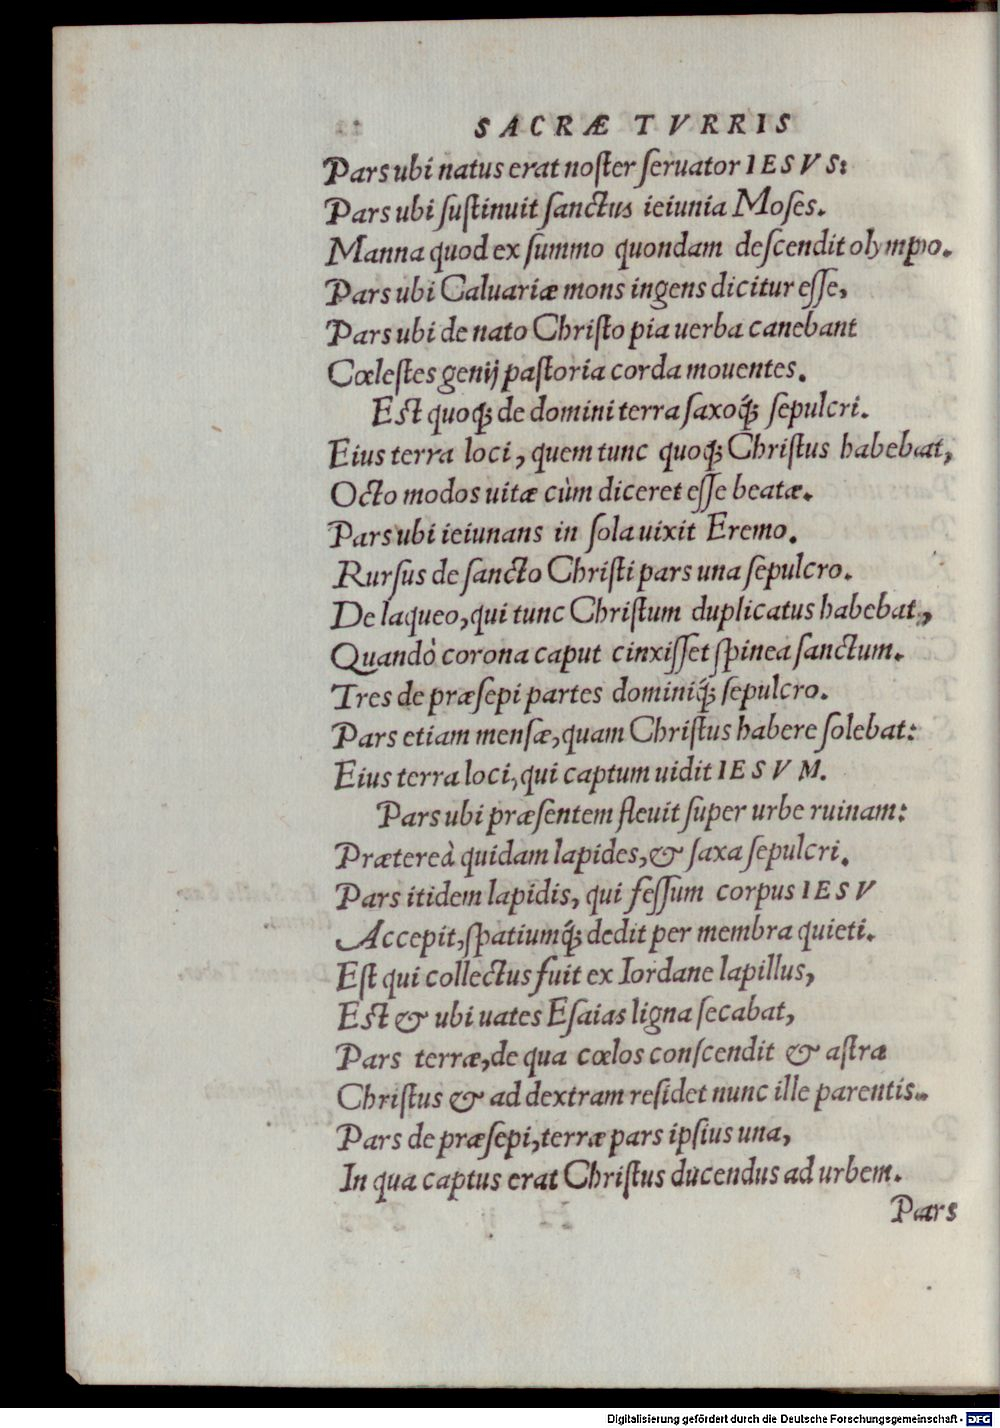 SACRÆ TVRRIS
Pars ubi natus erat noſter ſeruator IESVS:
Pars ubi ſuſtinuit ſanctus ieiunia Moſes.
Manna quod ex ſummo quondam deſcendit olympo.
Pars ubi Caluariæ mons ingens dicitur eſſe,
Pars ubi de nato Chriſto pia uerba canebant
Cœleſtes genij paſtoria corda mouentes.
Eſt quoq; de domini terra ſaxoq́; ſepulcri.
Eius terra loci, quem tunc quoq; Chriſtus habebat,
Octo modos uitæ cùm diceret eſſe beatæ.
Pars ubi ieiunans in ſola uixit Eremo.
Rurſus de ſancto Chriſti pars una ſepulcro.
De laqueo, qui tunc Chriſtum duplicatus habebat,
Quandò corona caput cinxiſſet ſpinea ſanctum.
Tres de præſepi partes dominiq́; ſepulcro.
Pars etiam menſæ, quam Chriſtus habere ſolebat:
Eius terra loci, qui captum uidit IESVM.
Pars ubi præſentem fleuit ſuper urbe ruinam:
Prætereà quidam lapides, & ſaxa ſepulcri.
Pars itidem lapidis, qui feſſum corpus IESV
Accepit, ſpatiumq́; dedit per membra quieti.
Eſt qui collectus fuit ex Iordane lapillus,
Eſt & ubi uates Eſaias ligna ſecabat,
Pars terræ, de qua cœlos conſcendit & aſtra
Chriſtus & ad dextram reſidet nunc ille parentis.
Pars de præſepi, terræ pars ipſius una,
In qua captus erat Chriſtus ducendus ad urbem.
Pars
Digitalisierung gefördert durch die Deutsche Forschungsgemeinschaft - DFG